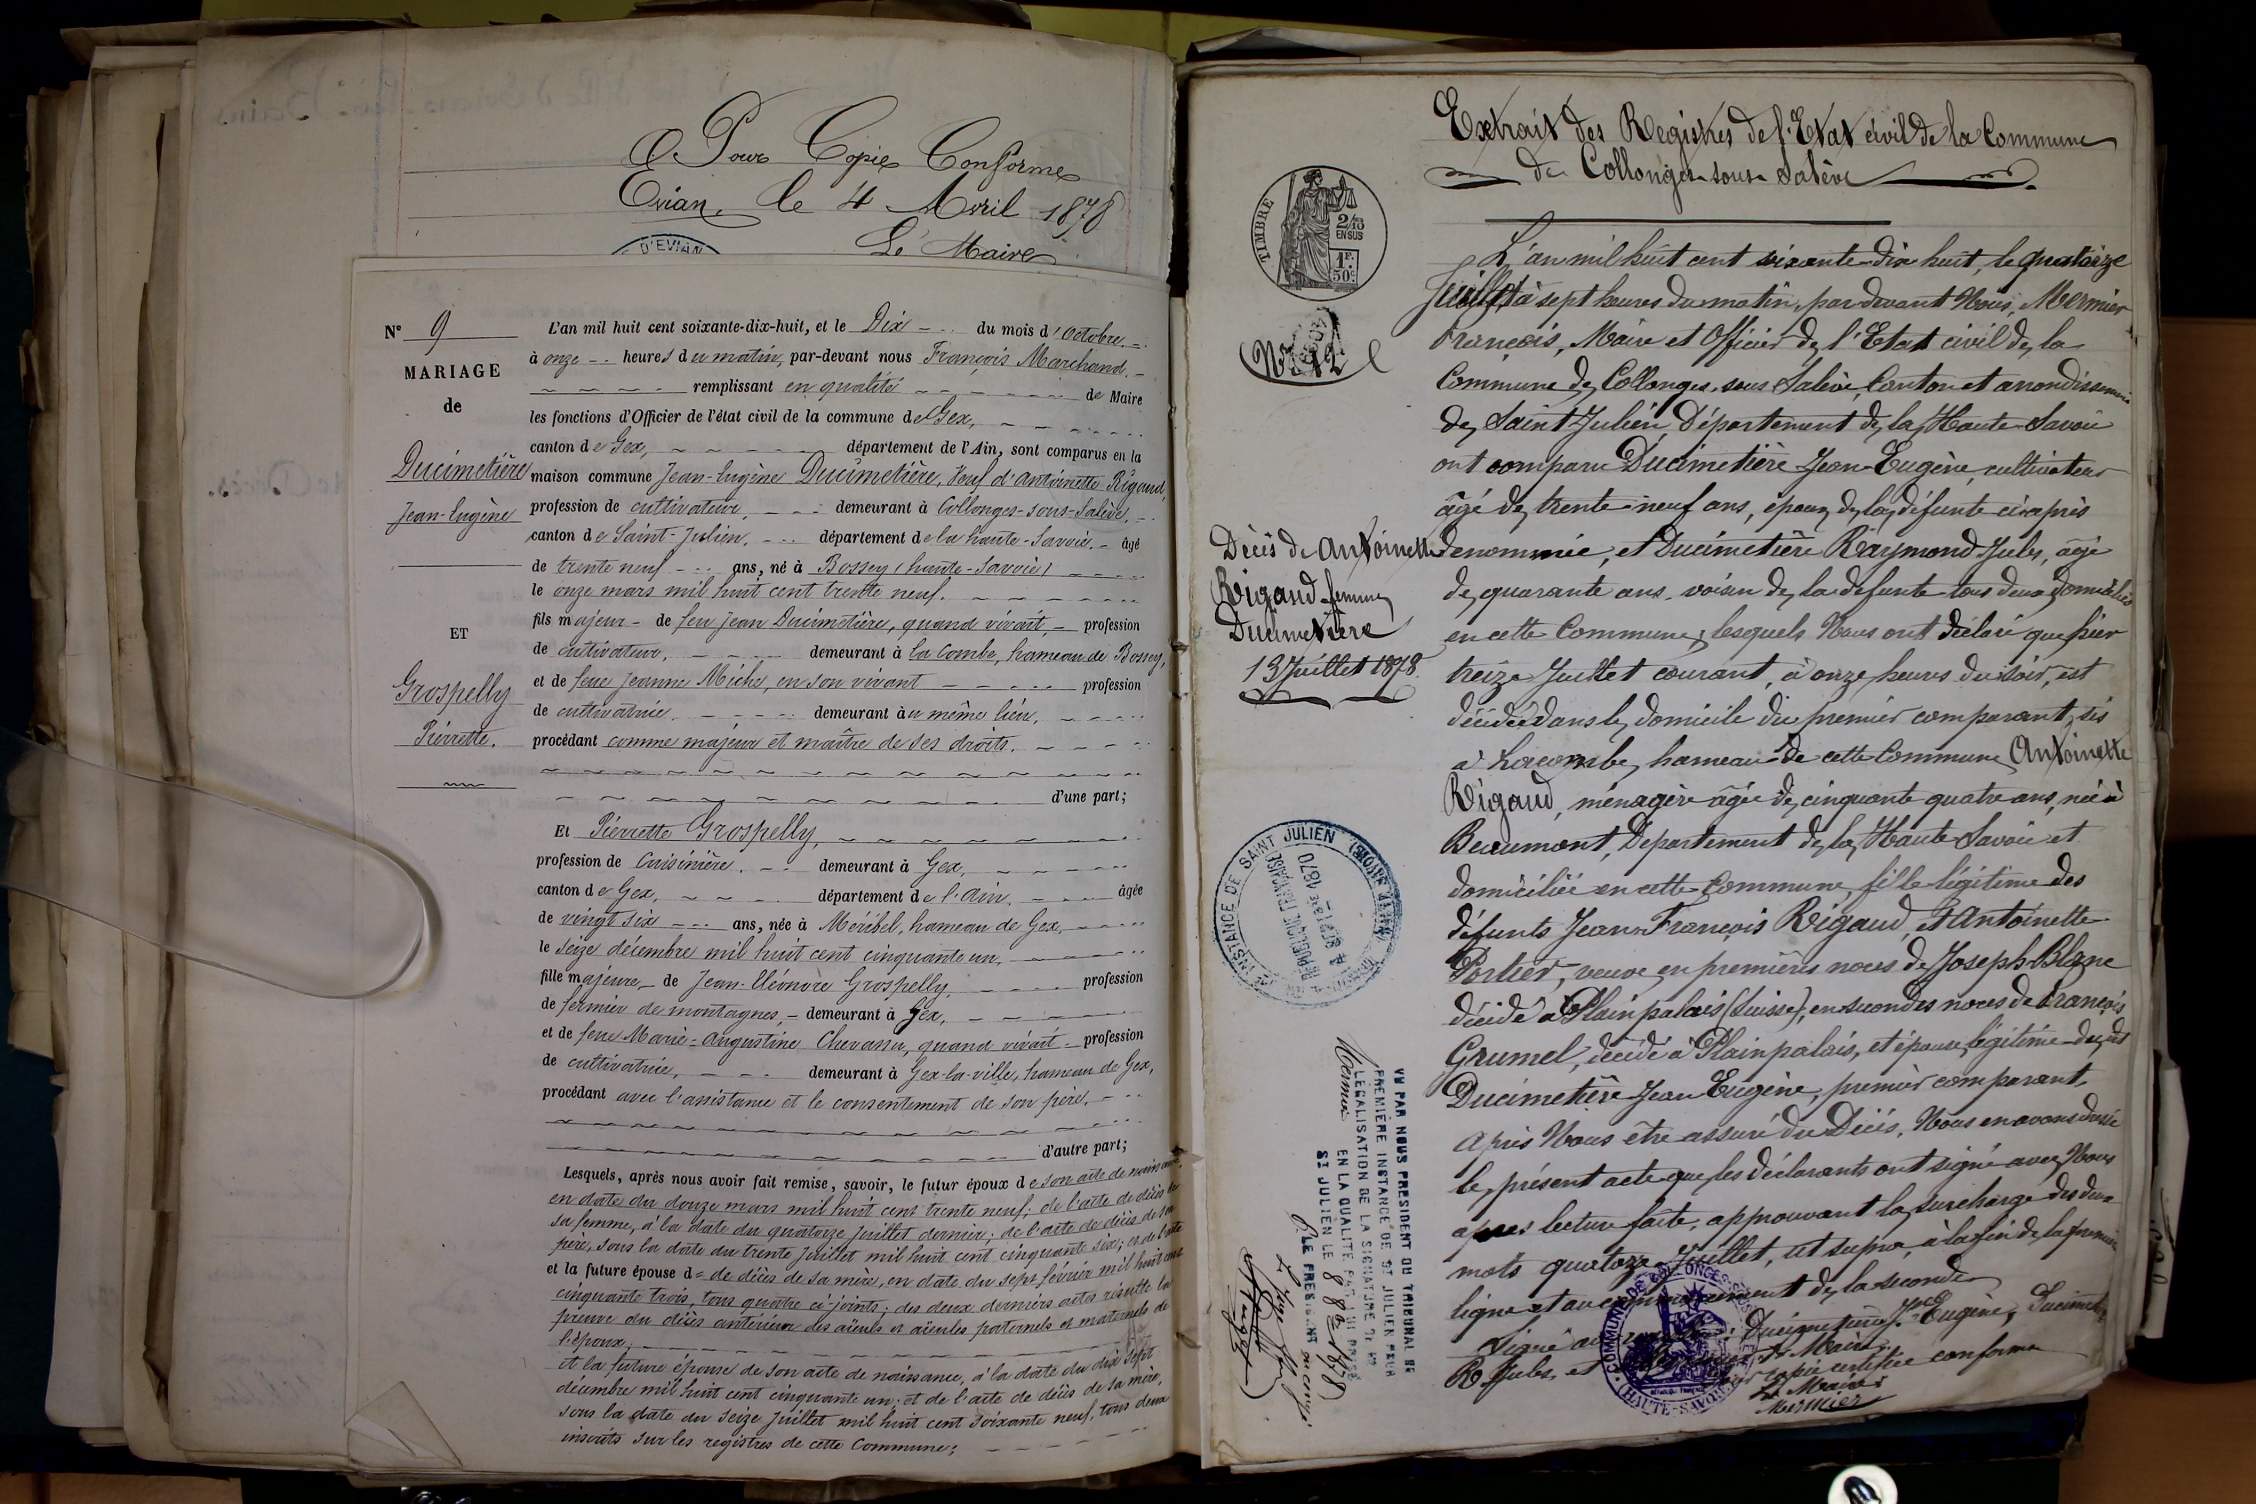 Pour Copie Conforme
Evian, le 4 Avril 1878
Le Maire
D'EVIAN
N° 9
MARIAGE
de
Ducimetière
Jean-Eugène
ET
Grospelly
Pierrette.
L'an mil huit cent soixante-dix-huit, et le Dix du mois d'octobre
à onze heures du matin, par-devant nous François Marchand.
remplissant en qualité de Maire
les fonctions d'Officier de l'état civil de la commune de Gex,
canton de Gex, département de l'Ain, sont comparus en la
maison commune Jean-Eugène Ducimetière, Veuf d'Antoinette Rigaud,
profession de cultivateur, demeurant à Collonges-sous-Salève,
canton de Saint-Julien, département de la haute-Savoie, âgé
de trente neuf ans, né à Bossey (haute-Savoie)
le onze mars mil huit cent trente neuf.
fils majeur de feu Jean Ducimetière, quand vivait, profession
de cultivateur, demeurant à la Combe, hameau de Bossey,
et de feue Jeanne Miche, en son vivant profession
de cultivatrice, demeurant au même lieu,
procédant comme majeur et maître de ses droits.
d'une part;
Et Pierrette Grospelly,
profession de Cuisinière, demeurant à Gex,
canton de Gex, département de l'Ain, âgée
de vingt six ans, née à Méribel, hameau de Gex,
le seize décembre mil huit cent cinquante un,
fille majeure, de Jean-Eléonore Grospelly, profession
de fermier de montagnes, demeurant à Gex,
et de feue Marie-Augustine Chevassu, quand vivait profession
de cultivatrice, demeurant à Gex-la-ville, hameau de Gex,
procédant avec l'assistance et le consentement de son père.
d'autre part;
Lesquels, après nous avoir fait remise, savoir, le futur époux de son acte de naissance,
en date du douze mars mil huit cent trente neuf; de l'acte de décès de
sa femme, à la date du quatorze Juillet dernier; de l'acte de décès de son
père, sous la date du trente Juillet mil huit cent cinquante six; et de l'acte
et la future épouse d= de décès de sa mère, en date du sept février mil huit cent
cinquante trois, tous quatre ci-joints; des deux derniers actes résulte la
preuve du décès antérieur des aïeuls et aïeules paternels et maternels de
l'époux;
et la future épouse de son acte de naissance, à la date du dix sept
décembre mil huit cent cinquante un; et de l'acte de décès de sa mère,
sous la date du seize Juillet mil huit cent soixante neuf, tous deux
inscrits sur les registres de cette Commune;
Extrait des Registres de l'Etat civil de la Commune
de Collonges-sous-Salève
TIMBRE
2/10
EN SUS
1F.
50c.
N° 12
Décès de Antoinette
Rigaud femme
Ducimetière
13 Juillet 1878.
L'an mil huit cent soixante-dix huit, le quatorze
Juillet à sept heures du matin, par devant Nous, Mermier
François, Maire et Officier de l'Etat civil de la
Commune de Collonges, sous Salève, Canton et arrondissement
de Saint Julien, Département de la Haute Savoie
ont comparu Ducimetière Jean Eugène, cultivateur
âgé de trente-neuf ans, époux de la défunte ci-après
denommée, et Ducimetière Raymond Jules, âgé
de quarante ans, voisin de la défunte tous deux domiciliés
en cette Commune; lesquels Nous ont déclaré que hier
treize Juillet courant, à onze heures du soir, est
décédée dans le domicile du premier comparant, sis
à Lacombe, hameau de cette Commune, Antoinette
Rigaud, ménagère âgée de cinquante quatre ans, née à
Beaumont, Département de la Haute Savoie et
domiciliée en cette Commune, fille légitime des
défunts Jean François Rigaud, et Antoinette
Portier, veuve en premières noces de Joseph Blanc
décédé à Plainpalais (Suisse), en secondes noces de François
Grumel, décédé à Plainpalais, et épouse légitime du dit
Ducimetière Jean Eugène, premier comparant.
Après Nous être assuré du Décès, Nous en avons dressé
le présent acte que les déclarants ont signé avec Nous
après lecture faite, approuvant la surcharge des deux
mots quatorze Juillet, ut supra, à la fin de la première
ligne et au commencement de la seconde
Signé au Eugène, Ducimetière
R Jules, et Maire.
copie certifiée conforme
Le Maire
Mermier
INSTANCE DE SAINT JULIEN
(HAUTE SAVOIE)
RÉPUBLIQUE FRANÇAISE
4 SEPTBRE 1870
VU PAR NOUS PRESIDENT DU TRIBUNAL DE
PREMIERE INSTANCE DE ST JULIEN POUR
LEGALISATION DE LA SIGNATURE DE Mr
Mermier EN LA QUALITE
ST JULIEN LE 8 8bre 1878
P. LE PRESIDENT
Le Juge
COMMUNE DE COLLONGES-SOUS
(HAUTE-SAVOIE)